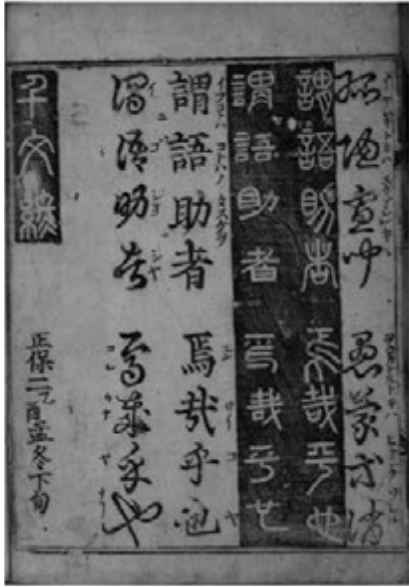 孤陋寡聞 愚蒙等誚
謂語助者 焉哉乎也
謂語助者 焉哉乎也
謂語助者 焉哉乎也
謂語助者 焉哉乎也
千文終
正保二乙酉孟冬下旬